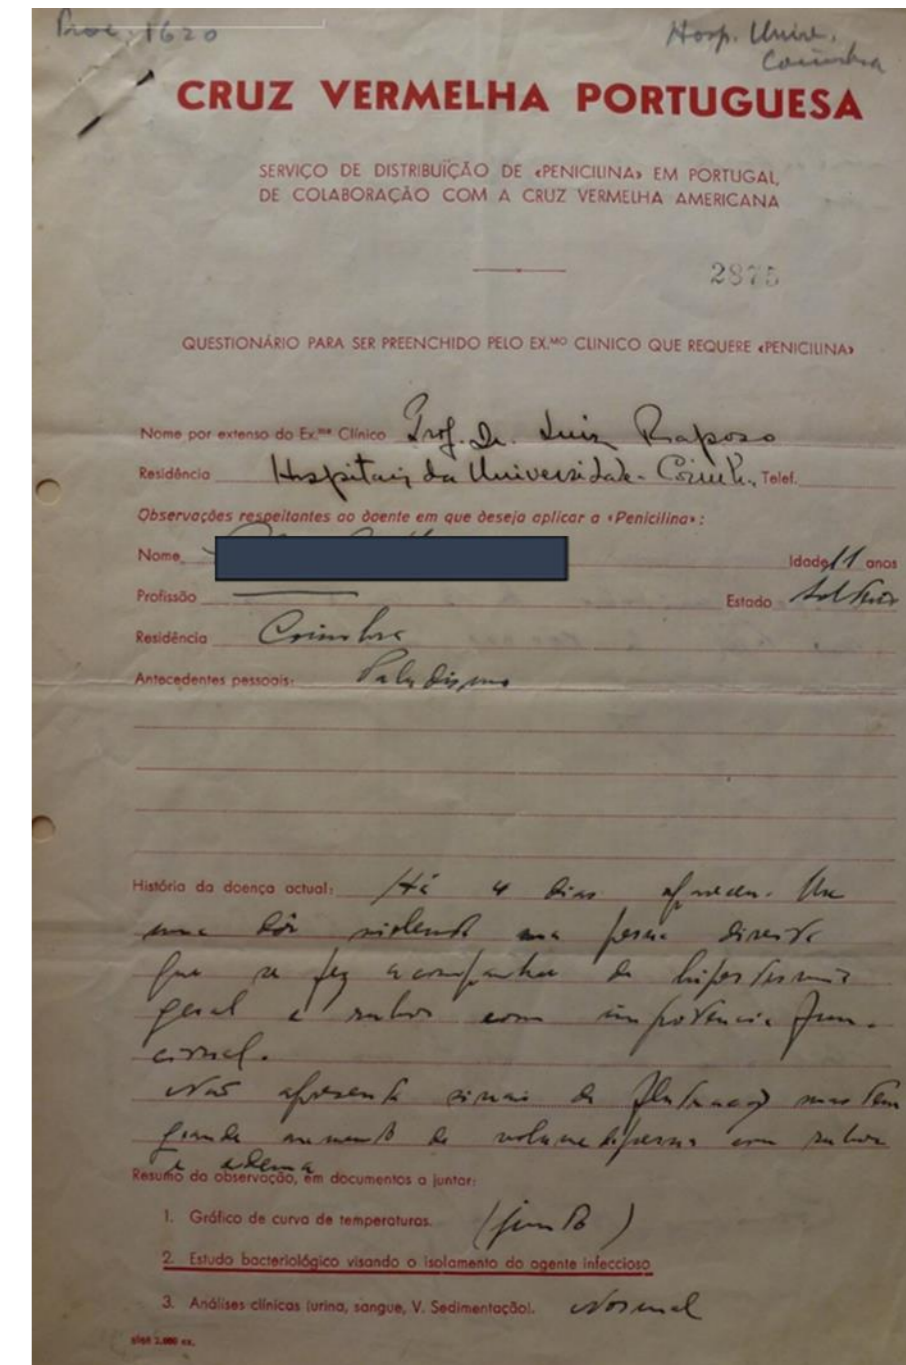 Proc. 1620
Hosp. Univ.
Coimbra
CRUZ VERMELHA PORTUGUESA
SERVIÇO DE DISTRIBUÏÇÃO DE «PENICILINA» EM PORTUGAL,
DE COLABORAÇÃO COM A CRUZ VERMELHA AMERICANA
2875
QUESTIONÁRIO PARA SER PREENCHIDO PELO EX.MO CLINICO QUE REQUERE «PENICILINA»
Nome por extenso do Ex.mo Clínico Prof. Dr. Luiz Raposo
Residência Hospitais da Universidade - Coimb. Telef.
Observações respeitantes ao doente em que deseja aplicar a «Penicilina»:
Nome Idade 11 anos
Profissão Estado Solteiro
Residência Coimbra
Antecedentes pessoais: Paludismo
História da doença actual: Há 4 dias apareceu-lhe
uma dôr violenta na perna direita
que se fez acompanhar de hipertermia
geral e rubor com impotência fun-
cional.
Não apresenta sinais de flutuação mas tem
grande aumento de volume da perna com rubor
e edema
Resumo da observação, em documentos a juntar:
1. Gráfico de curva de temperaturas. (junto)
2. Estudo bacteriológico visando o isolamento do agente infeccioso
3. Análises clínicas (urina, sangue, V. Sedimentação). Normal
2.000 ex.